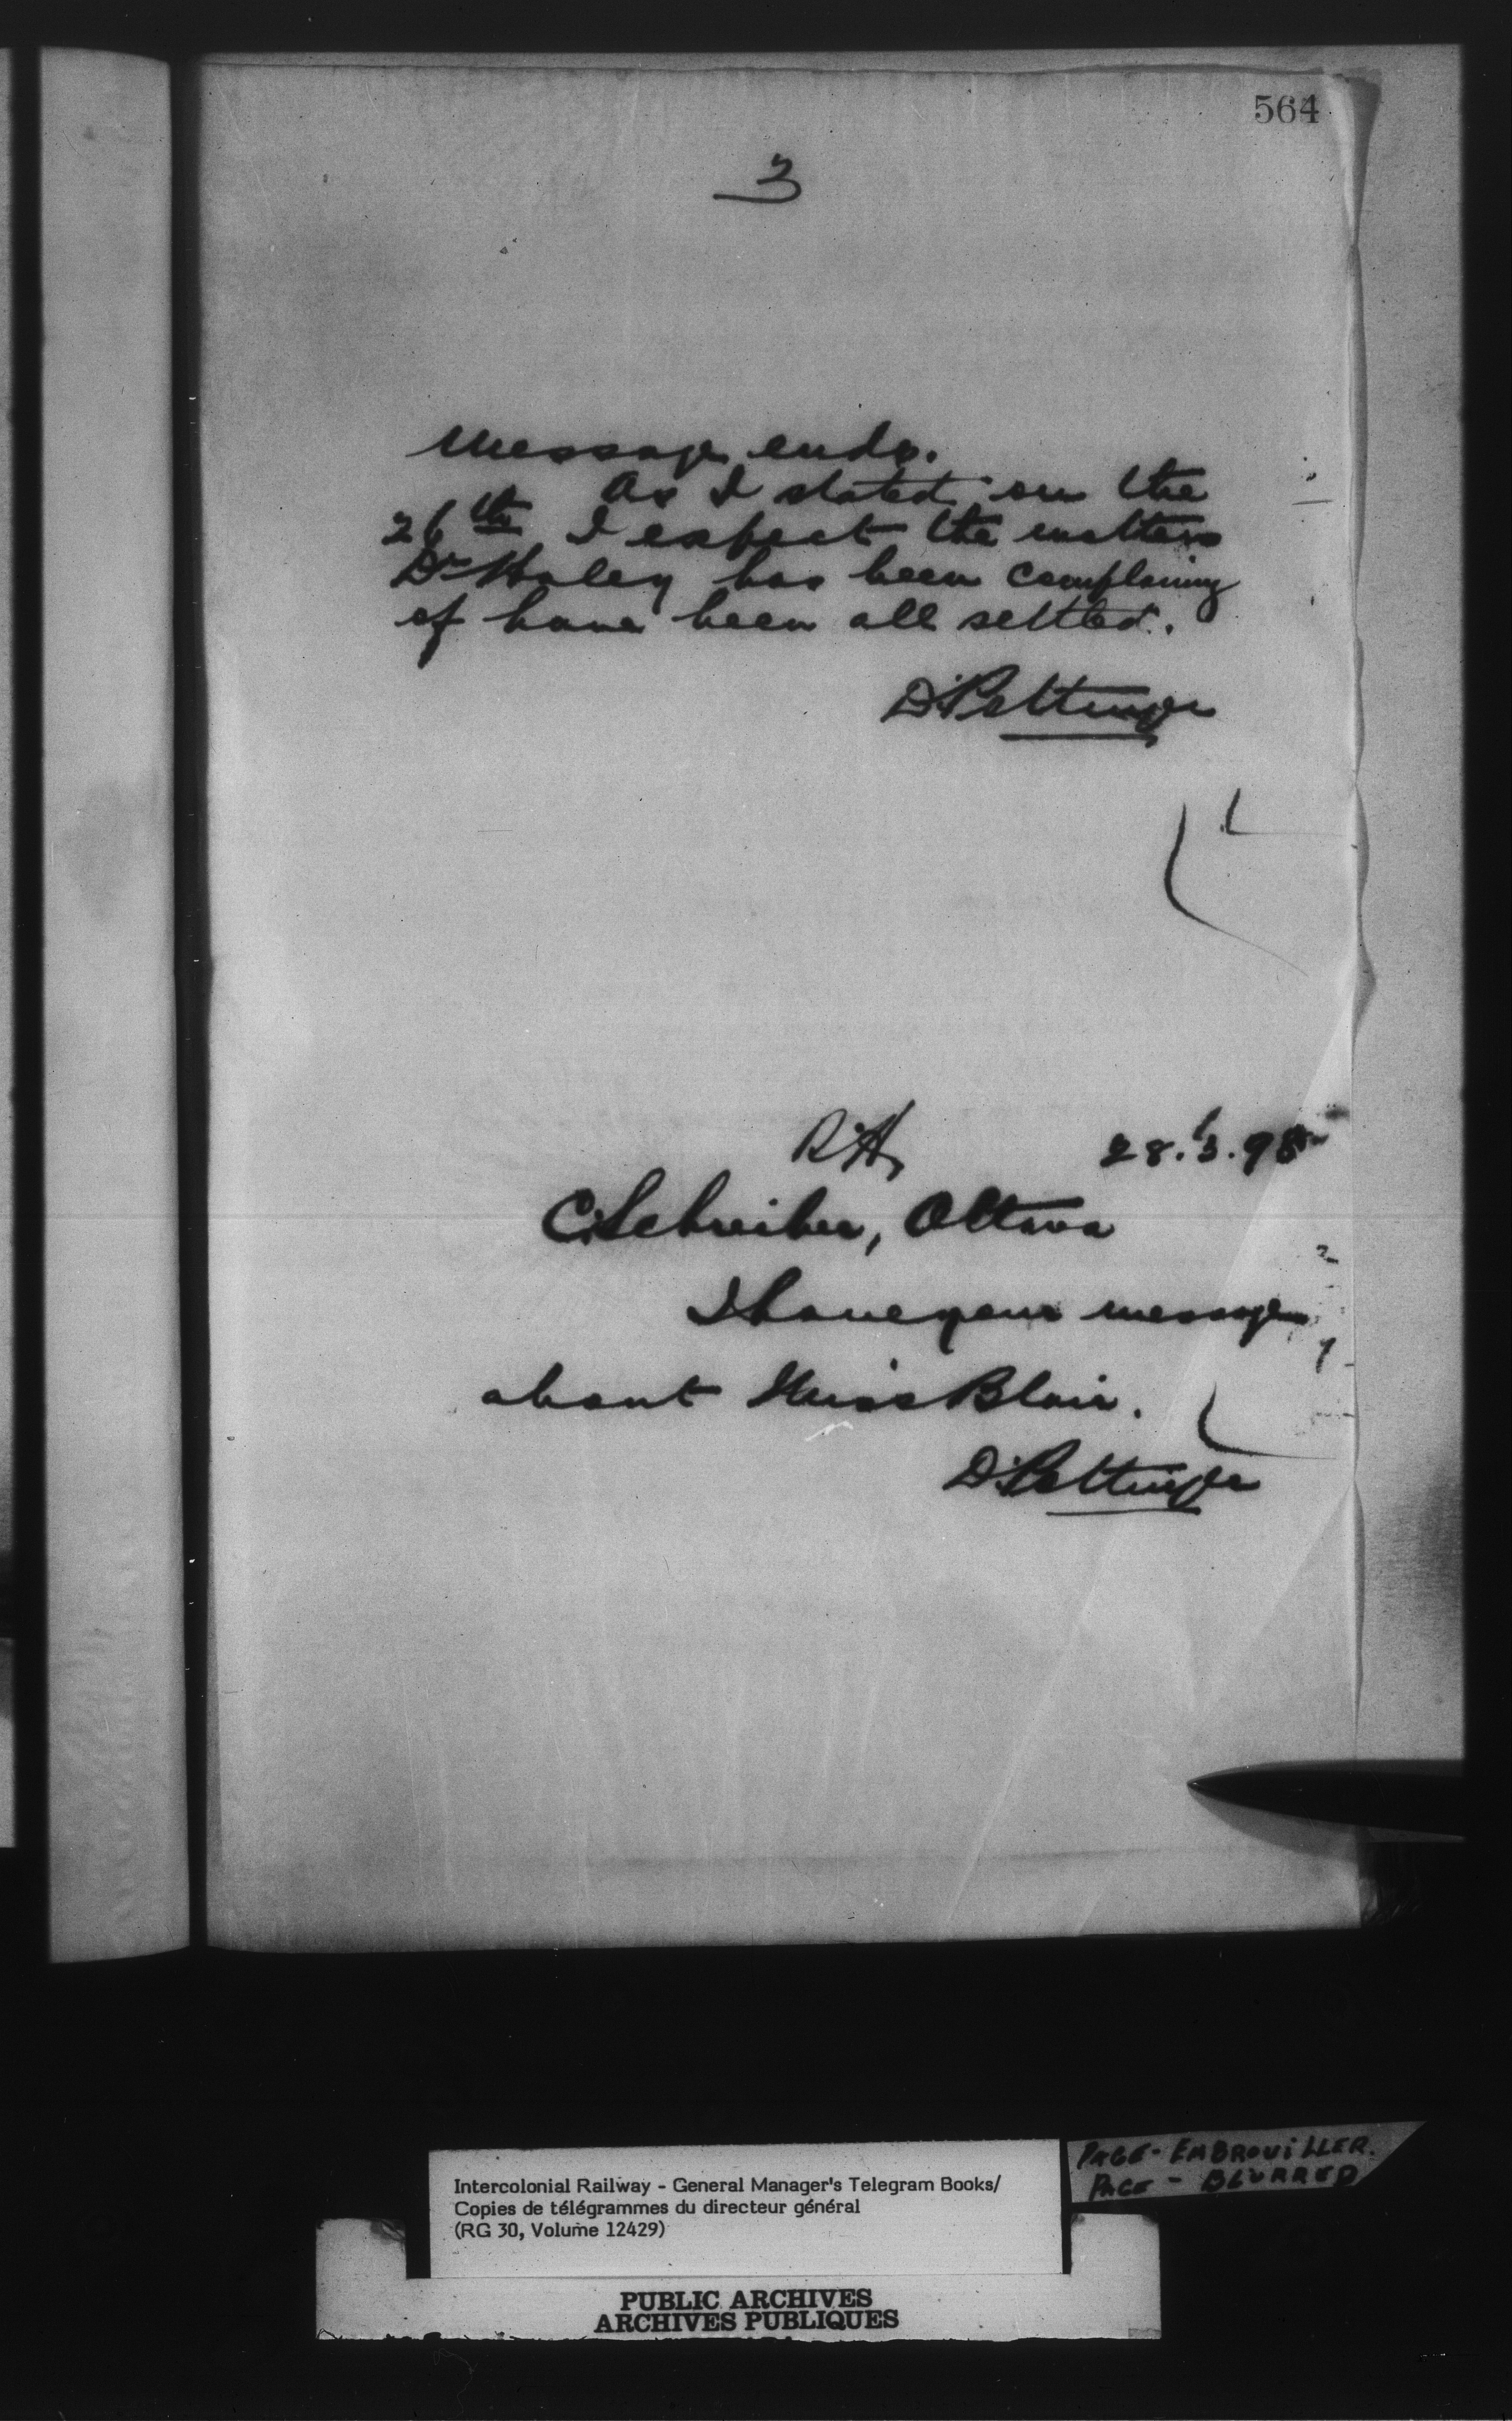 564
3
Message ends.
As I stated on the
26th I expect the matters
Dr Haley has been complaining
of have been all settled.
D. Pottinger
R.H. 28.3.98
C. Schreiber, Ottawa
I have your message
about Miss Blair.
D. Pottinger
PAGE - EMBROUILLER.
PAGE - BLURRED
Intercolonial Railway - General Manager's Telegram Books/
Copies de télégrammes du directeur général
(RG 30, Volume 12429)
PUBLIC ARCHIVES
ARCHIVES PUBLIQUES